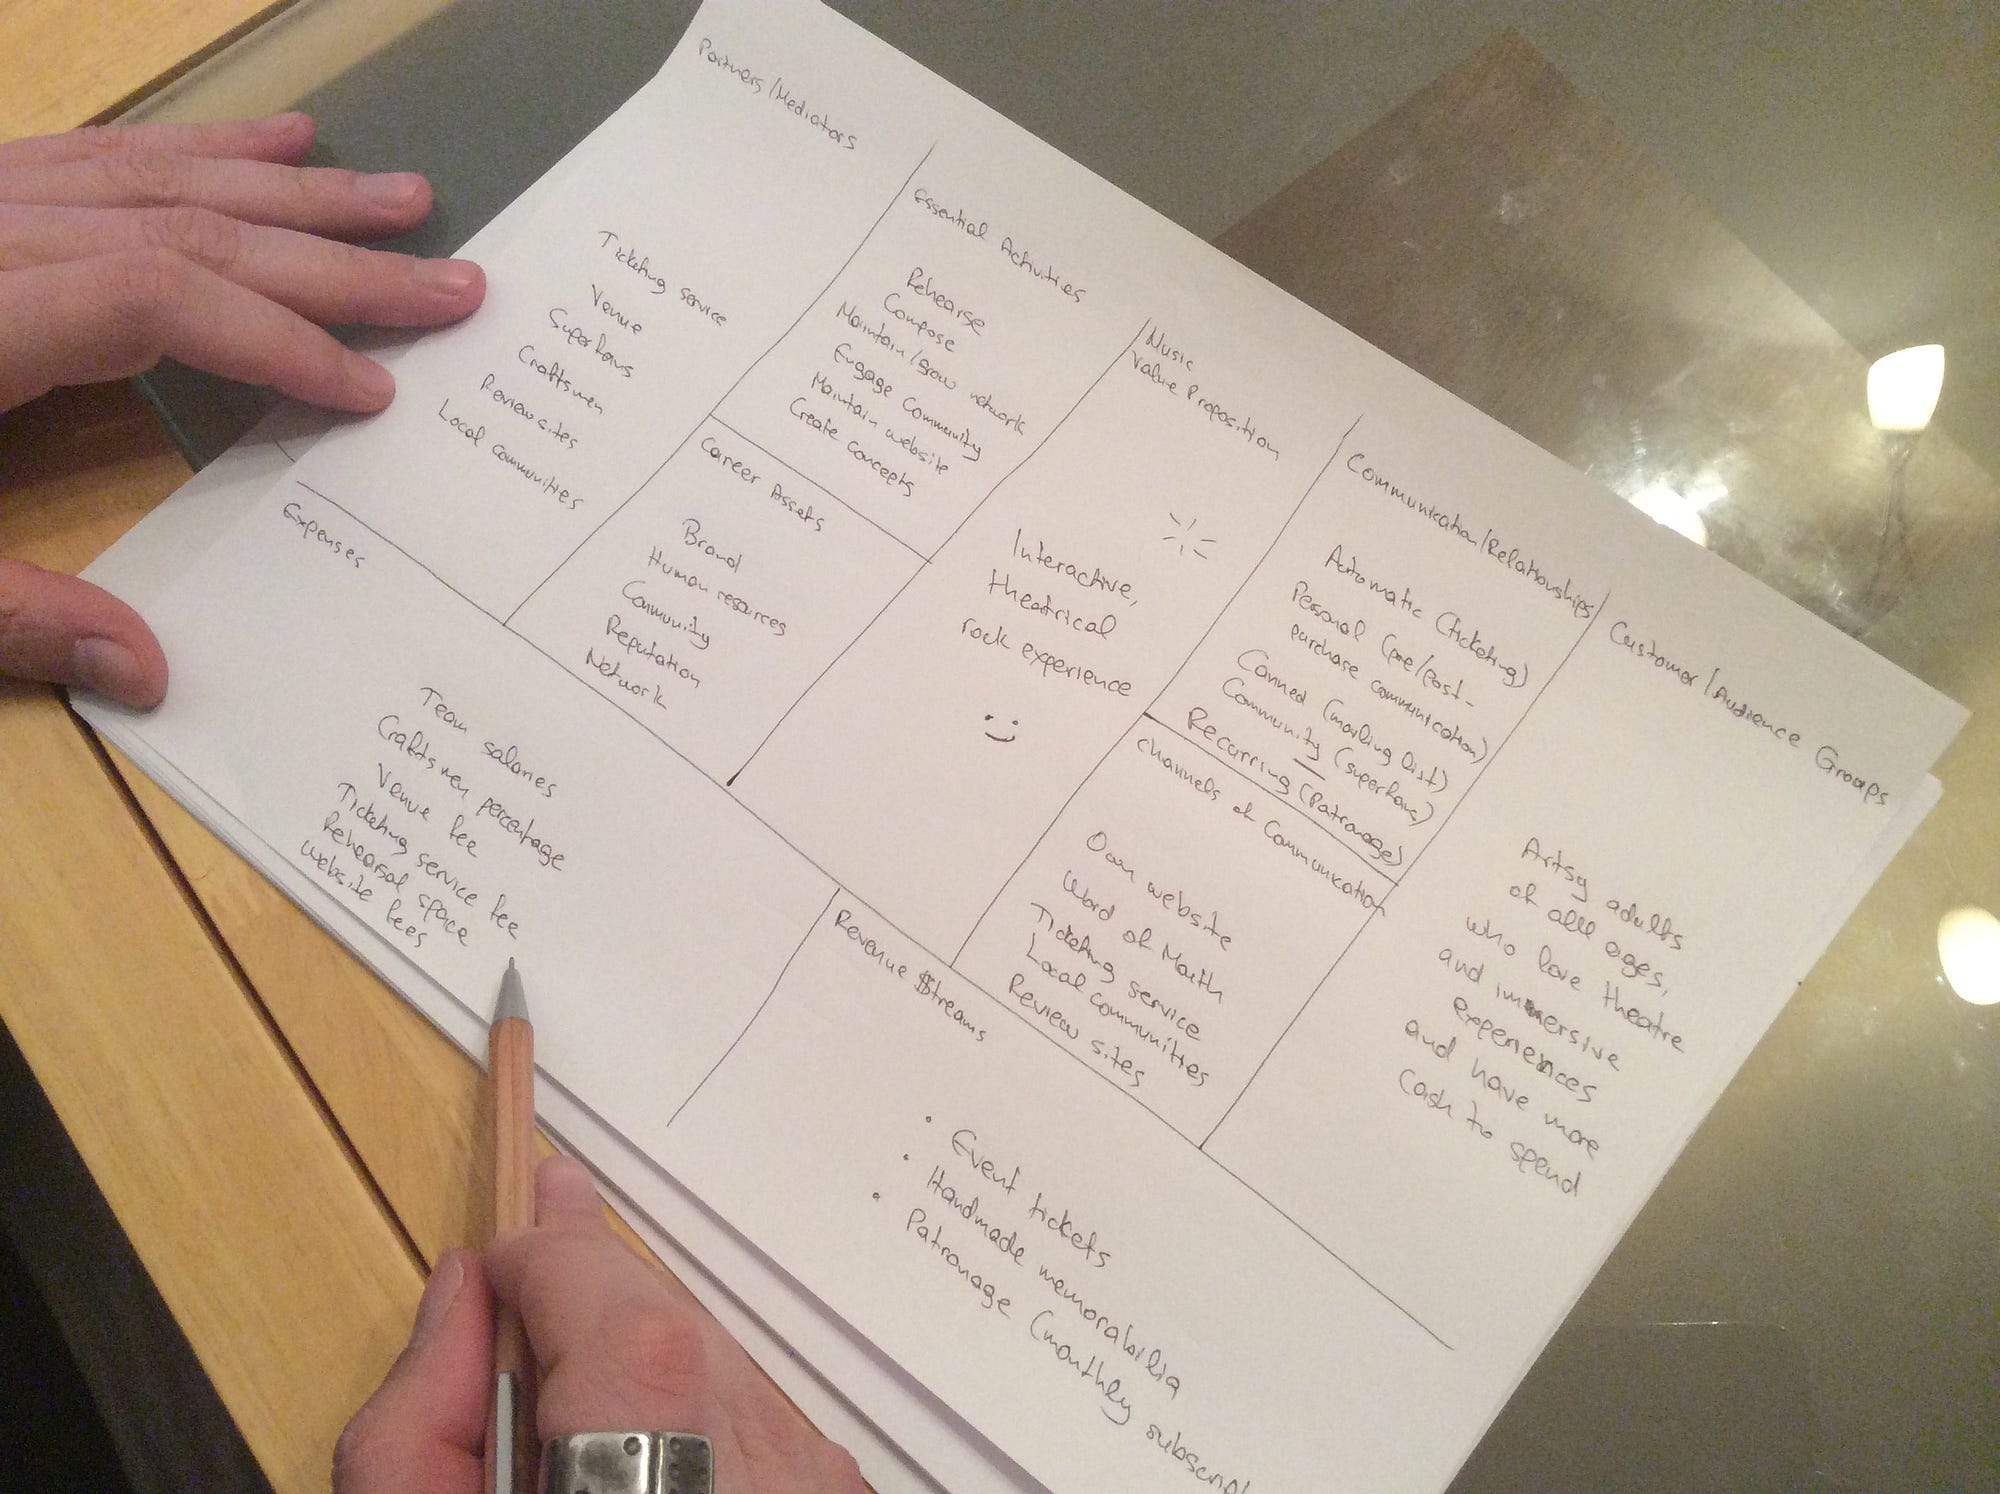 Partners/Mediators
Ticketing service
Venue
Superfans
Craftsmen
Review sites
Local communities
Essential Activities
Rehearse
Compose
Maintain/grow network
Engage Community
Maintain website
Create concepts
Career Assets
Brand
Human resources
Community
Reputation
Network
Music
Value Proposition
Interactive,
theatrical
rock experience
Communication/Relationships
Automatic (ticketing)
Personal (pre/post-
purchase communication)
Canned (mailing list)
Community (superfans)
Recurring (Patronage)
Channels of Communication
Own website
Word of Mouth
Ticketing service
Local communities
Review sites
Customer/Audience Groups
Artsy adults
of all ages,
who love theatre
and immersive
experiences
and have more
cash to spend
Expenses
Team salaries
Craftsmen percentage
Venue fee
Ticketing service fee
Rehearsal space
Website fees
Revenue $treams
• Event tickets
• Handmade memorabilia
• Patronage (monthly subscript